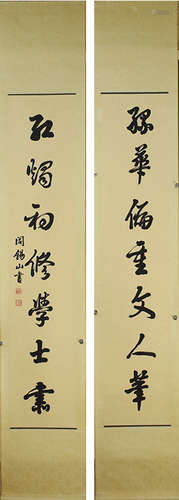 華偏重文人
紅燭初修學士
閻錫山書